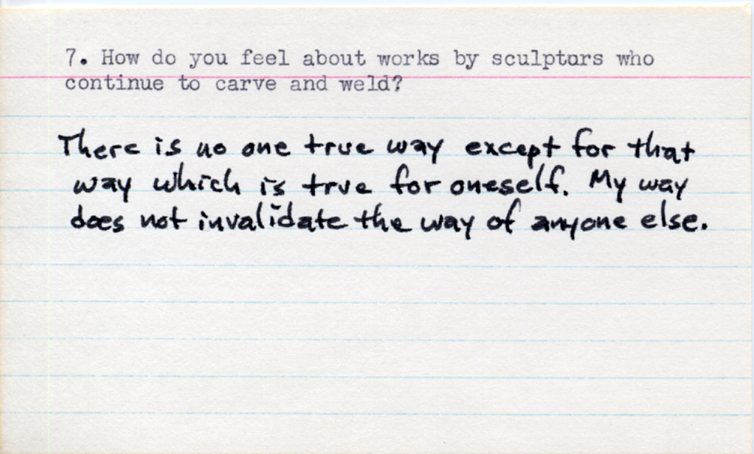 7. How do you feel about works by sculptors who
continue to carve and weld?
There is no one true way except for that
way which is true for oneself. My way
does not invalidate the way of anyone else.